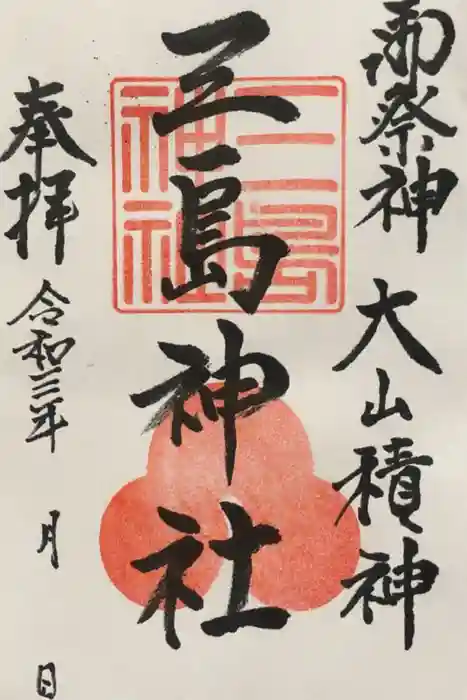 御祭神 大山積神
三島神社
三島神社
奉拝 令和三年 月 日